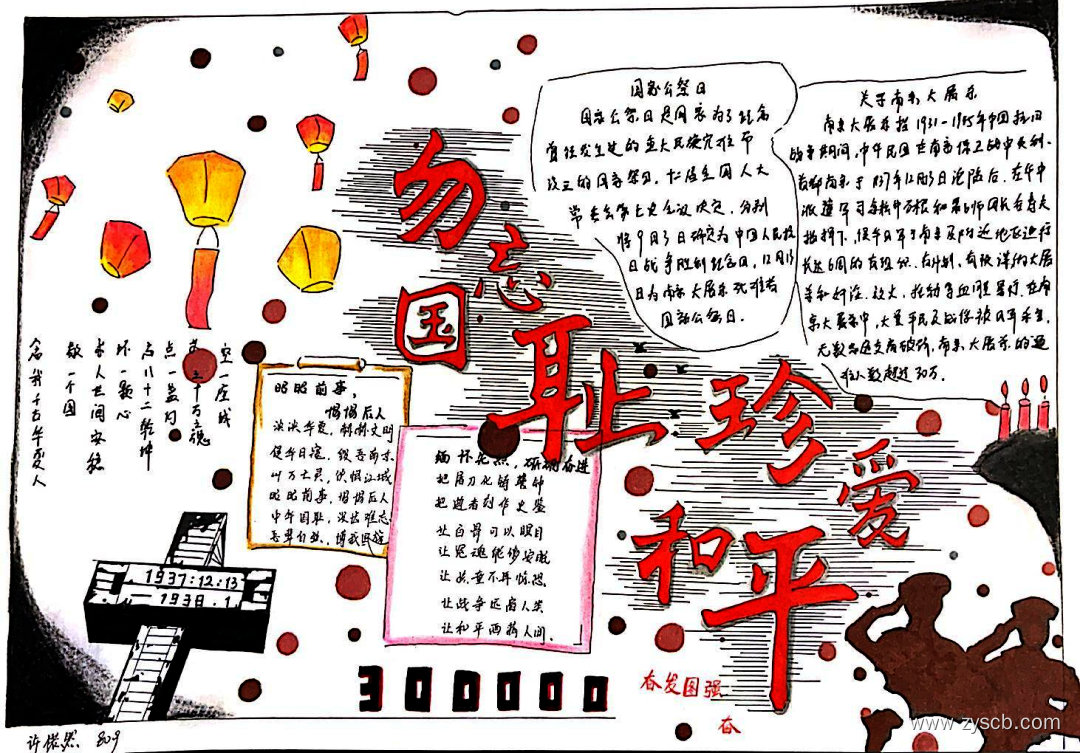 勿忘
国耻
珍爱
和平
国家公祭日
国家公祭日是国家为了纪念
曾经发生过的重大民族灾难而
设立的国家祭日。十二届全国人大
常委会第七次会议决定，分别
将9月3日确定为中国人民抗
日战争胜利纪念日，12月13
日为南京大屠杀死难者
国家公祭日。
关于南京大屠杀
南京大屠杀指1931-1945年中国抗日
战争期间，中华民国
首都南京于1937年12月13日沦陷后，在华中
指挥下，侵华日军于南京及附近地区进行
长达6周的有组织、有计划、有预谋的大屠
京大屠杀中，大量平民及战俘被日军杀害，
无数 南京大屠杀的遇
难人数超过30万。
空一座城
三十万立魂
点一盏灯
六八十二乾坤
怀一颗心
求人世间安稳
敬一个国
念我千古华夏人
昭昭前事，
惕惕后人
泱泱华夏，赫赫文明
侵华日寇，毁吾南京
卅万亡灵，饮恨江城
昭昭前事，惕惕后人
缅怀先烈，砥砺奋进
把屠刀化铸警钟
把逝者刻作史鉴
让白骨可以瞑目
让冤魂能够安眠
让孩童不再惊恐
让战争远离人类
让和平洒播人间。
1937:12:13
1938.1
300000
奋发图强
奋
809
www.zyscb.com